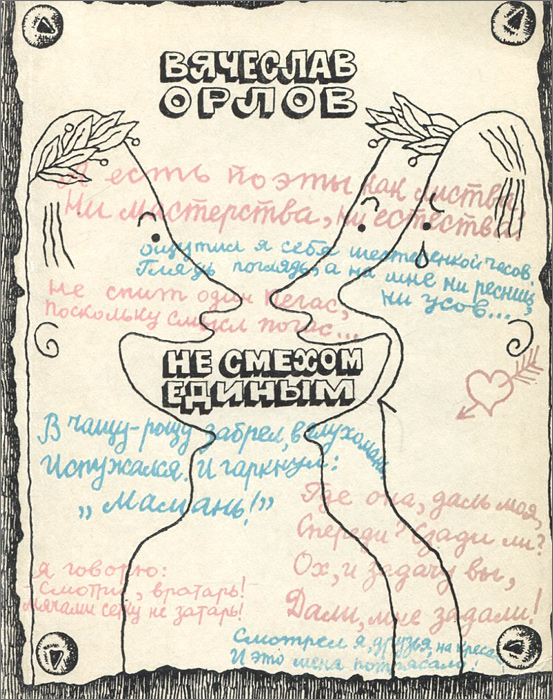 ВЯЧЕСЛАВ
ОРЛОВ
А есть поэты как листва
Ни мастерства, ни естества!
Ощутил я себя шестеренкой часов:
Глядь поглядь, а на мне ни ресниц,
ни усов...
Не спит один Пегас,
Поскольку смысл погас...
НЕ СМЕХОМ
ЕДИНЫМ
В чащу-рощу забрел, в глухомань
Испужался. И гаркнул:
„Мамань!"
Где она, даль моя,
Спереди? Сзади ли?
Ох, и задачу вы,
Дали, мне задали!
Я говорю:
- Смотри, вратарь!
Мячами сетку не затарь!
Смотрел я, друзья, на кресало
И это меня потрясало!